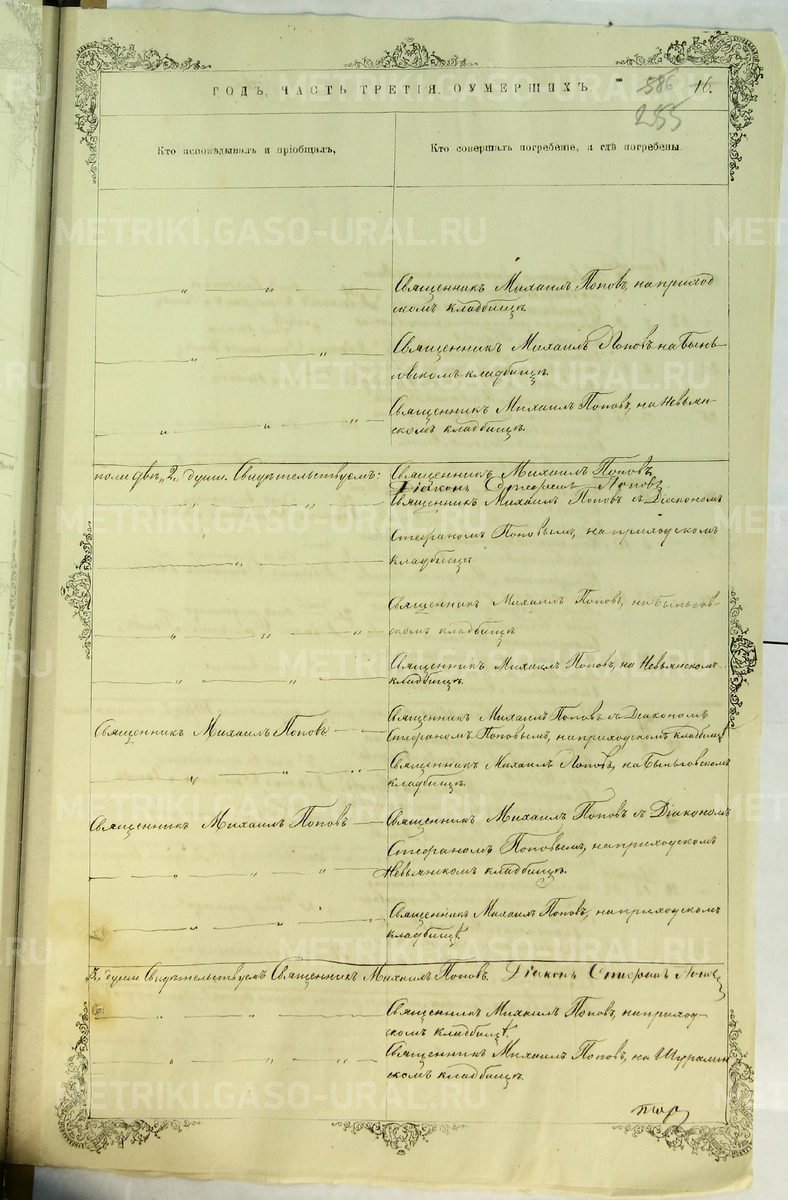 ГОДЪ, ЧАСТЬ ТРЕТІЯ, ОУМЕРШИХЪ. 586 16.
255
Кто исповѣдывалъ и пріобщалъ,
Кто совершалъ погребеніе, и гдѣ погребены.
METRIKI.GASO-URAL.RU
Священникъ Михаилъ Поповъ, на приход
скомъ кладбищѣ.
Священникъ Михаилъ Поповъ на Бынь-
говскомъ кладбищѣ.
Священникъ Михаилъ Поповъ, на Невьян-
скомъ кладбищѣ.
пола двѣ „2„ души Свидѣтельствуемъ: Священникъ Михаилъ Поповъ
Діаконъ Стефанъ Поповъ
Священникъ Михаилъ Поповъ съ Діакономъ
Стефаномъ Поповымъ, на приходскомъ
кладбищѣ
Священникъ Михаилъ Поповъ, на Быньгов-
скомъ кладбищѣ
Священникъ Михаилъ Поповъ, на Невьянскомъ
кладбищѣ.
Священникъ Михаилъ Поповъ
Священникъ Михаилъ Поповъ съ Діакономъ
Стефаномъ Поповымъ, на приходскомъ кладбищѣ
Священникъ Михаилъ Поповъ, на Быньговскомъ
кладбищѣ.
Священникъ Михаилъ Поповъ
Священникъ Михаилъ Поповъ съ Діакономъ
Стефаномъ Поповымъ, на приходскомъ
Невьянскомъ кладбищѣ.
Священникъ Михаилъ Поповъ, на приходскомъ
кладбищѣ.
2. души Свидѣтельствуемъ Священникъ Михаилъ Поповъ. Діаконъ Стефанъ Поповъ
Священникъ Михаилъ Поповъ, на приход-
скомъ кладбищѣ.
Священникъ Михаилъ Поповъ, на Шуралин
скомъ кладбищѣ.